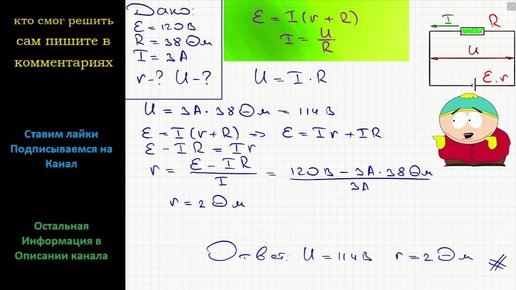 кто смог решить
сам пишите в
комментариях
Ставим лайки
Подписываемся на
Канал
Остальная
Информация в
Описании канала
Дано:
ℰ = 120В
R = 38Ом
I = 3А
r-? U-?
ℰ = I(r + R)
I = U/R
U = I·R
I R
U
ℰ.r
U = 3А·38Ом = 114В
ℰ = I(r+R) => ℰ = Ir + IR
ℰ - IR = Ir
r = (ℰ - IR)/I = (120В - 3А·38Ом)/3А
r = 2Ом
Ответ: U = 114В r = 2Ом